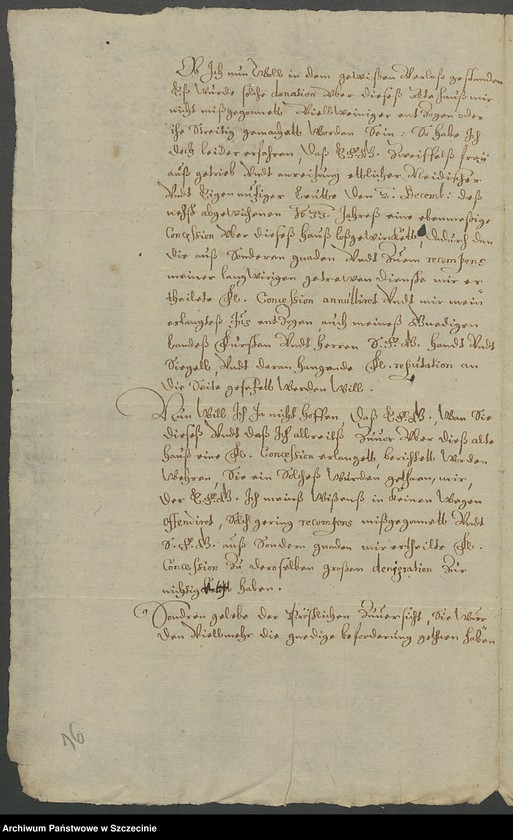 Ob Ich nun Woll in dem gewißen Verlaß gestanden
Eß würde solche donation vber dieseß alte hauß mir
nicht mißgegonnett Viell Weiniger entzogen oder
ihe streitig gemachett Werden Sein: So habe Ich
doch leider erfahren, daß E. F. G. Zweiffelß frey
auß getrieb Vndt anreitzung ettlicher Neidischer
Vndt Eigennutziger Leutte den 3. Decemb: deß
nehst abgewichenen 1633. Jahreß eine ebenmeßige
Concession vber dieseß hauß Dadurch dan
die auß Sonderen gnaden Vndt Zuem recompens
meiner langwirigen getrewen Dienste mir er
theilete Fl. Concession annulliret Vndt mir mein
erlangteß Jus entzogen, auch meineß Gnedigen
Landeß Fursten Vndt Herren S. F. G. handt Vndt
Siegell Vndt daran hangende Fl. reputation an
die Seite gesetzett Werden Will.
Nun Will Ich Ja nicht hoffen, daß E. F. G., Wan Sie
dieseß Vndt daß Ich albreitß Zuuor vber dieß alte
hauß eine Fl. Concession erlangett, berichtett Worden
Wehren, Sie ein Solcheß Wurden gethaen, mir,
der E. F. G. Ich meineß Wißenß in keinen Wegen
offendiret, Solch gering recompens mißgegonnett Vndt
S. F. G. auß Sondern gnaden mir ertheilte Fl.
Concession Zu deroselben großen denigration Zur
nichtig haben.
Sondren gelebe der Tröstlichen Zuuersicht, Sie Wür
den Viellmehr die gnedige beforderung gethaen haben
16
Archiwum Państwowe w Szczecinie